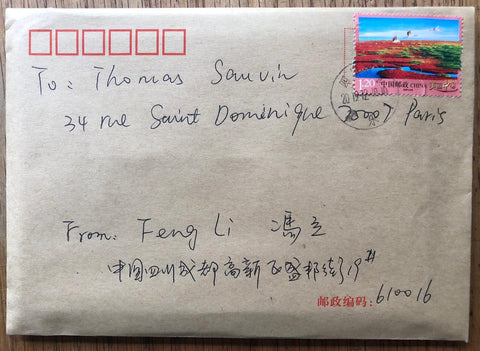 1.20元
中国邮政 CHINA
To: Thomas Sauvin
34 rue Saint Dominique 75007 Paris
From: Feng Li 冯立
中国四川成都高新区盛邦街19#
邮政编码: 610016